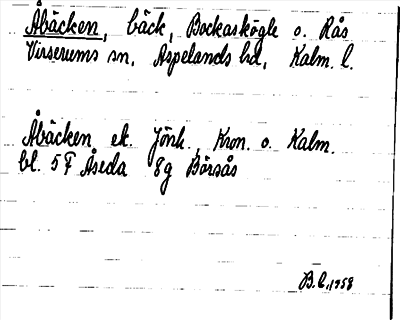 Åbäcken, bäck, Bockaskögle o. Rås
Virserums sn, Aspelands hd, Kalm. l.
Åbäcken ek. Jönk., Kron. o. Kalm.
bl. 5 F Åseda 8g Börsås
B.C. 1958